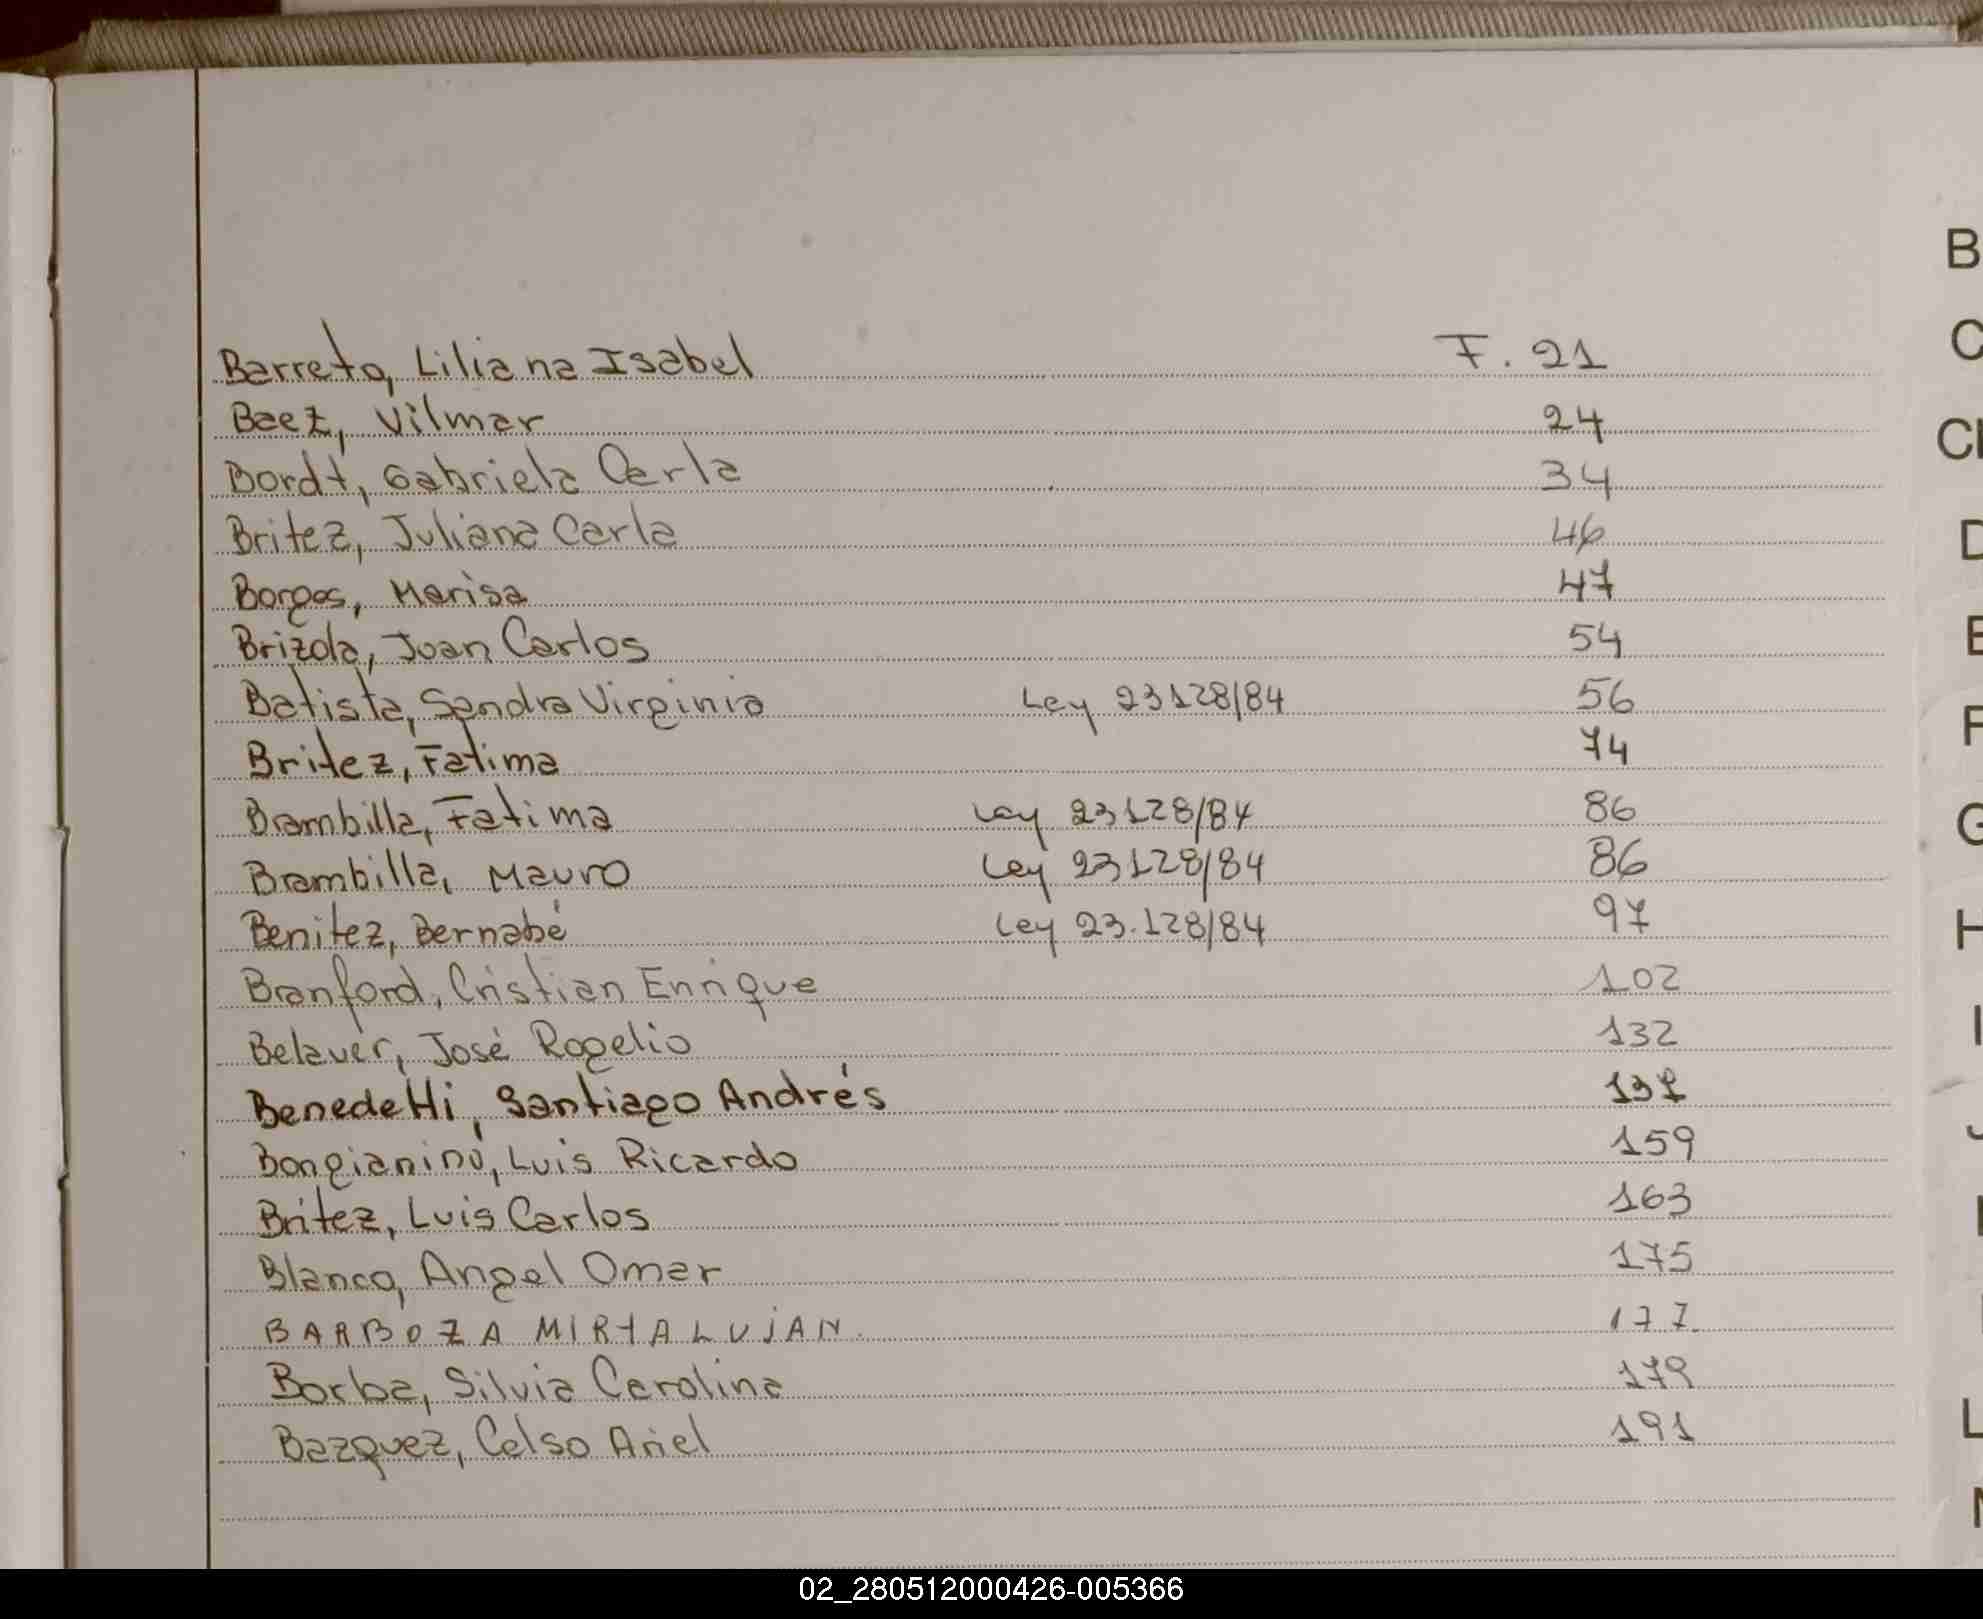 B
C
Barreto, Liliana Isabel F. 21
Baez, Vilmar 24
Bordt, Gabriela Carla 34
Britez, Juliana Carla 46
Borges, Marisa 47
Brizola, Juan Carlos 54
Batista, Sandra Virginia Ley 23128/84 56
Britez, Fatima 74
Brambilla, Fatima Ley 23128/84 86
Brambilla, Mauro Ley 23128/84 86
Benitez, Bernabé Ley 23.128/84 97
Branford, Cristian Enrique 102
Belaver, José Rogelio 132
Benedetti, Santiago Andrés
Bongianino, Luis Ricardo 159
Britez, Luis Carlos 163
Blanco, Angel Omar 175
BARBOZA MIRTA LUJAN. 177.
Borba, Silvia Carolina 179
Bazquez, Celso Ariel 191
D
E
F
G
H
I
J
L
02_280512000426-005366